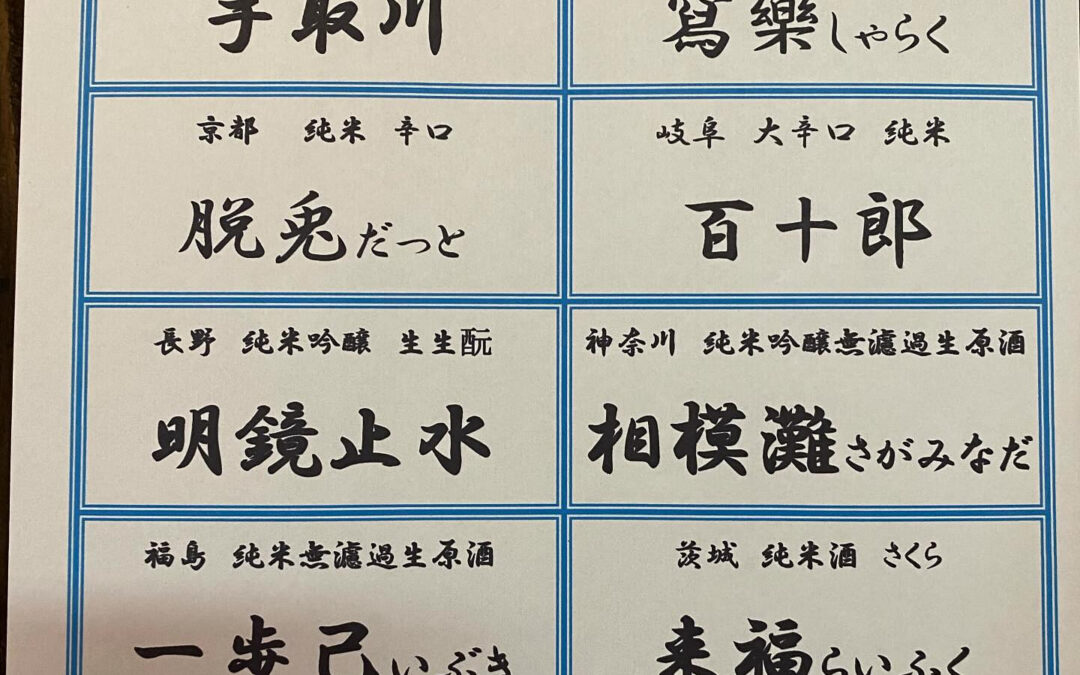 手取川
寫樂しゃらく
京都 純米 辛口
脱兎だっと
岐阜 大辛口 純米
百十郎
長野 純米吟醸 生生酛
明鏡止水
神奈川 純米吟醸無濾過生原酒
相模灘さがみなだ
福島 純米無濾過生原酒
一歩己いぶき
茨城 純米酒 さくら
来福らいふく